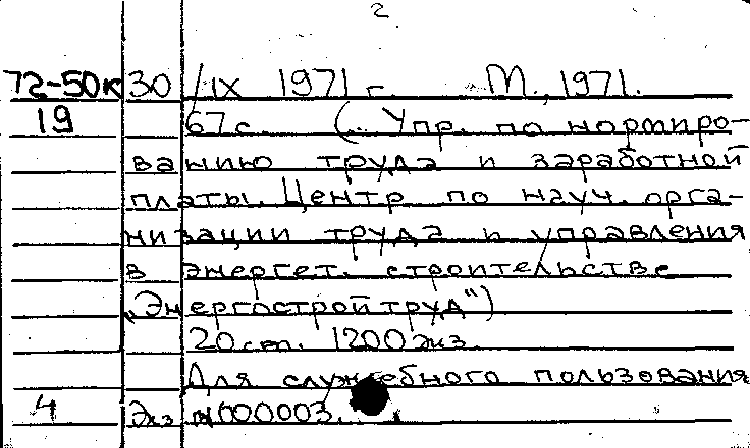 2
72-50к 30/IX 1971 г. М., 1971.
19 67 с. (Упр. по нормиро-
ванию труда и заработной
платы. Центр по науч. орга-
низации труда и управления
в энергет. строительстве
„Энергостройтруд")
20 см. 1200 экз.
Для служебного пользования
4 Экз №000003.